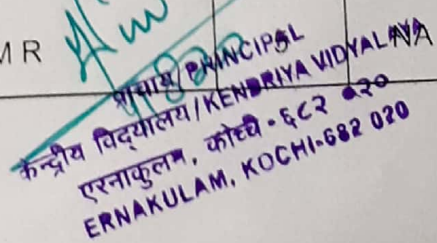 MR
प्राचार्य/PRINCIPAL
केन्द्रीय विद्यालय/KENDRIYA VIDYALAYA
एरनाकुलम, कोच्ची-६८२ ०२०
ERNAKULAM, KOCHI-682 020